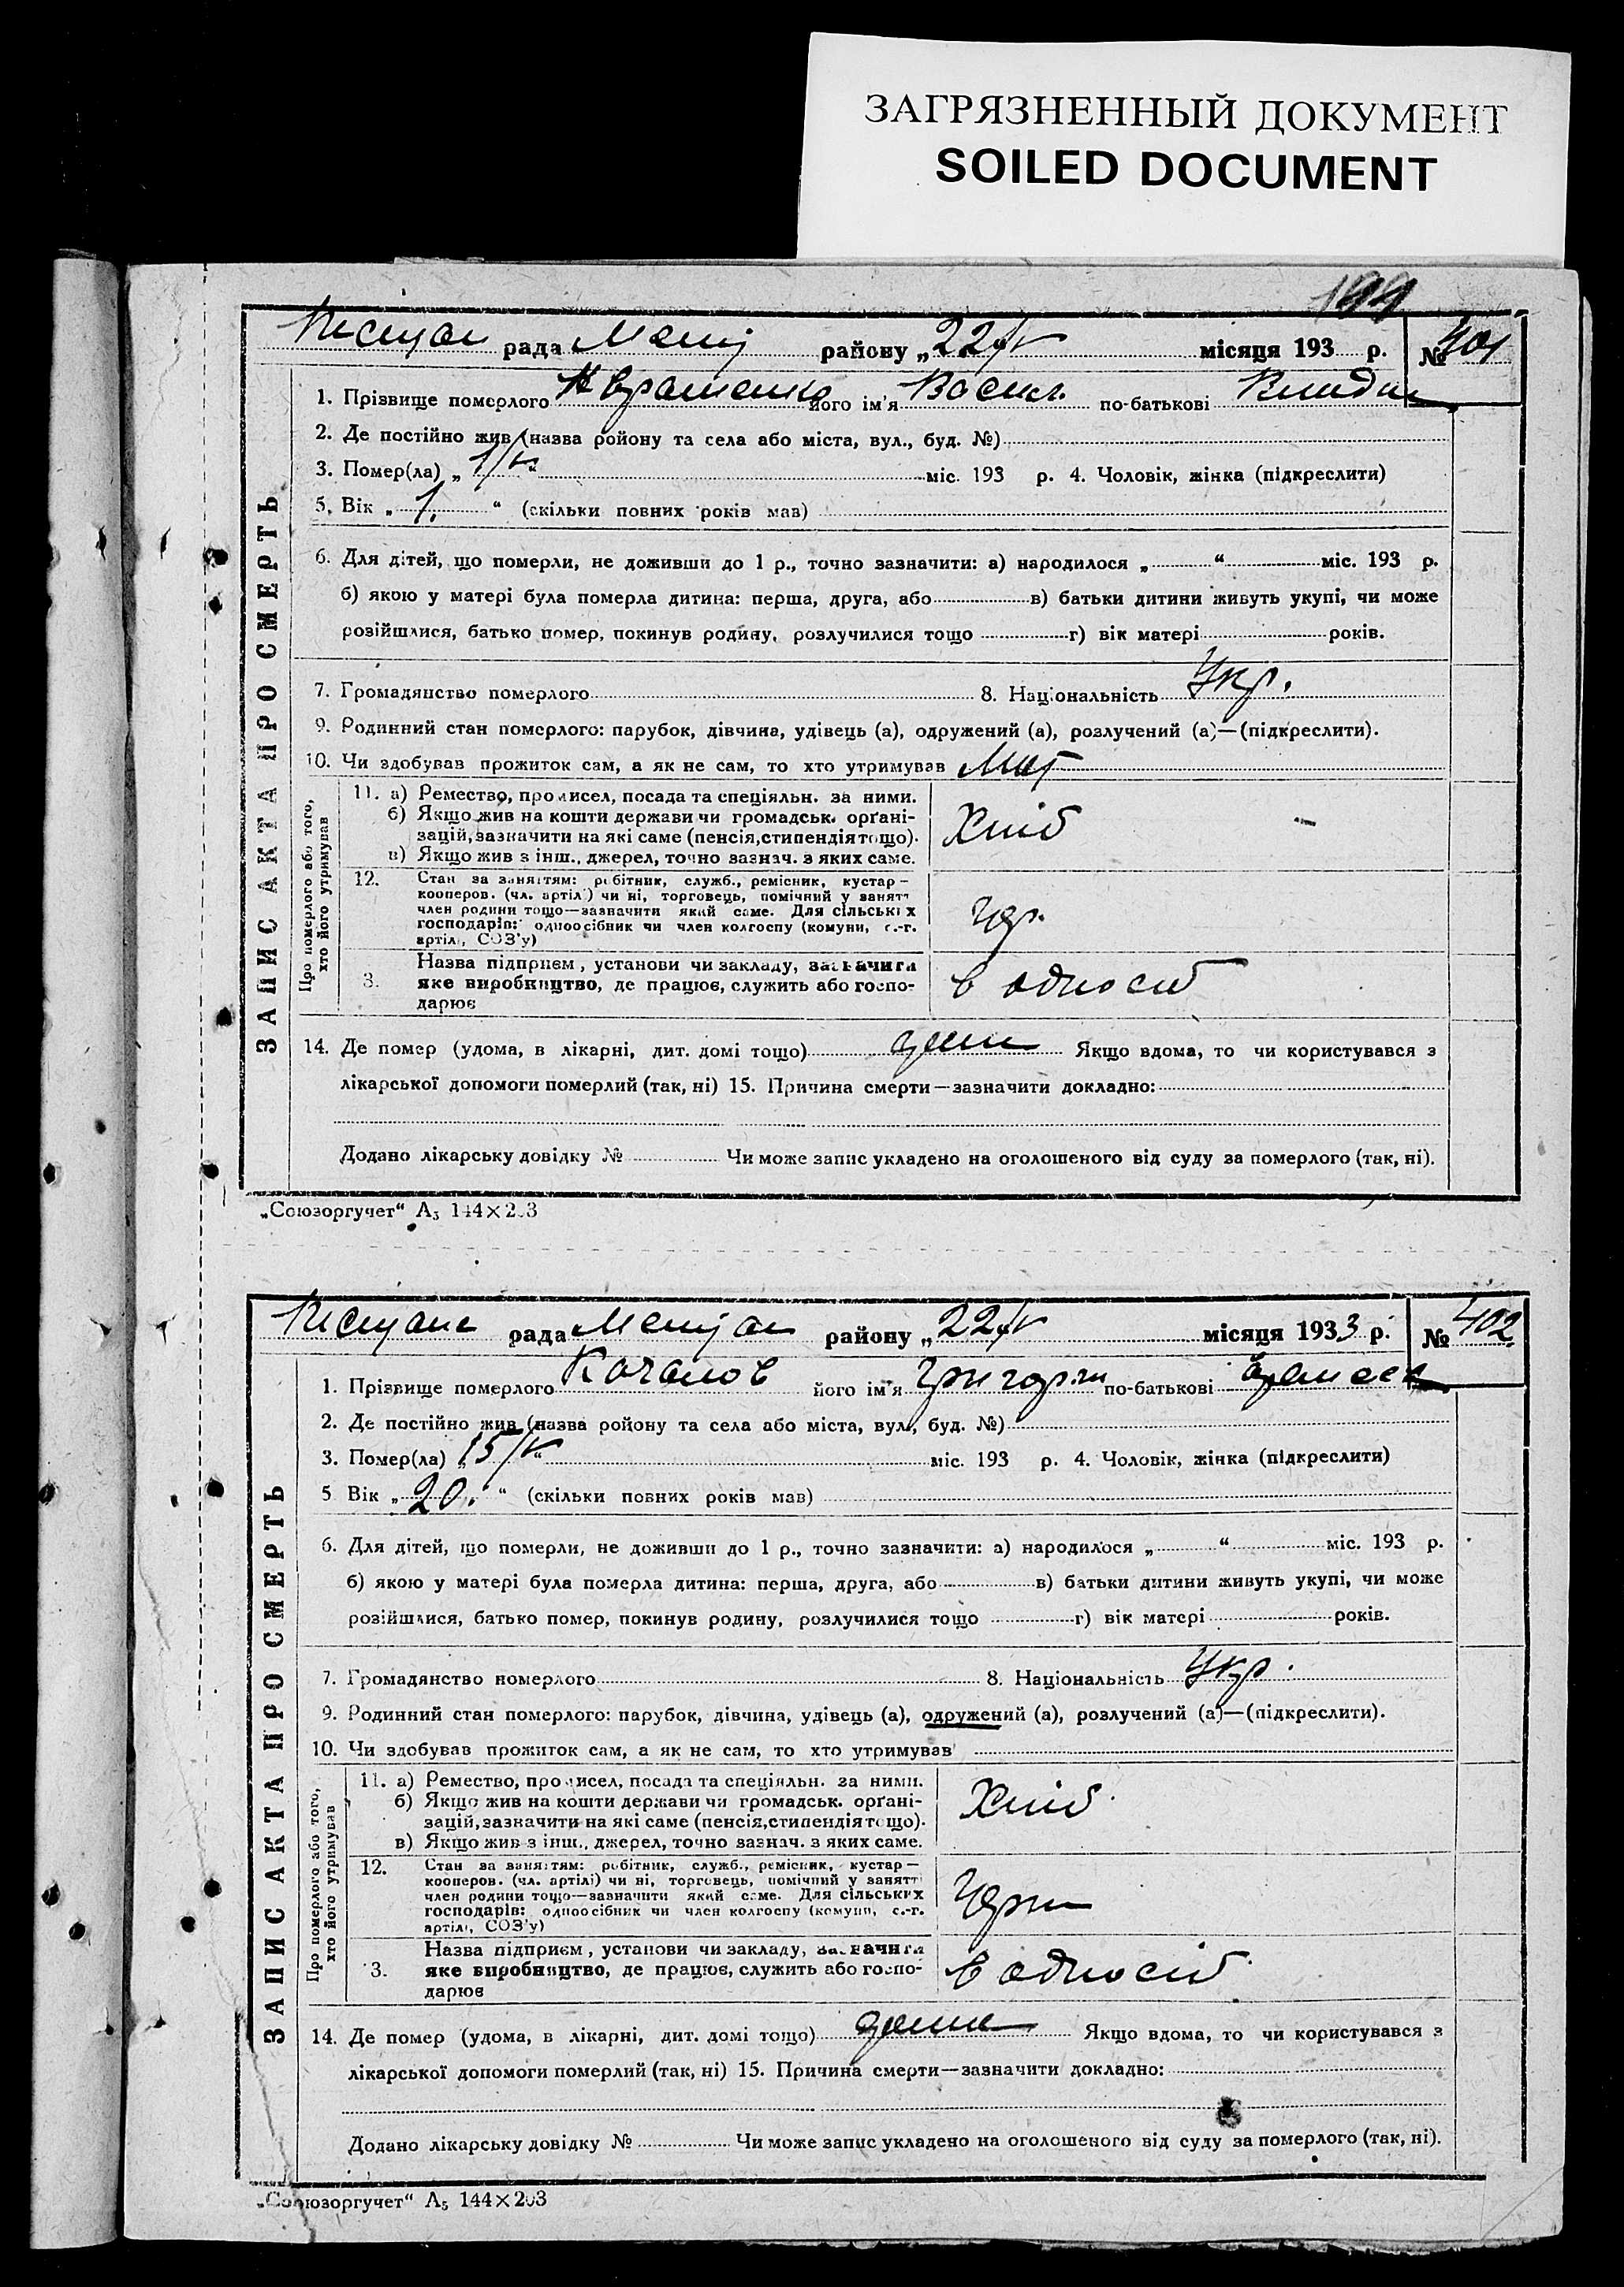 ЗАГРЯЗНЕННЫЙ ДОКУМЕНТ
SOILED DOCUMENT
199
рада районy „22/V місяця 193 р. № 401
ЗАПИС АКТА ПРО СМЕРТЬ
1. Прізвище померлого його ім'я Васил. по-батькові
2. Де постійно жив (назва ройону та села або міста, вул., буд. №)
3. Помер(ла) „ 1/V “ міс. 193 р. 4. Чоловік, жінка (підкреслити)
5. Вік „ 1. “ (скільки повних років мав)
6. Для дітей, що померли, не доживши до 1 р., точно зазначити: а) народилося „ “ міс. 193 р.
б) якою у матері була померла дитина: перша, друга, або в) батьки дитини живуть укупі, чи може
розійшлися, батько помер, покинув родину, розлучилися тощо г) вік матері років.
7. Громадянство померлого 8. Національність Укр.
9. Родинний стан померлого: парубок, дівчина, удівець (а), одружений (а), розлучений (а)—(підкреслити).
10. Чи здобував прожиток сам, а як не сам, то хто утримував Мат
Про померлого або того, хто його утримував
11. а) Ремество, промисел, посада та спеціяльн. за ними.
б) Якщо жив на кошти держави чи громадськ. орґані-
зацій, зазначити на які саме (пенсія, стипендія тощо).
в) Якщо жив з інш., джерел, точно зазнач. з яких саме.
Хліб
12. Стан за заняттям: робітник, служб., ремісник, кустар—
кооперов. (чл. артілі) чи ні, торговець, помічний у занятт
член родини тощо—зазначити який саме. Для сільських
господарів: одноосібник чи член колгоспу (комуни, с.-г.
артілі, СОЗ'у)
3. Назва підприєм, установи чи закладу, зазначити
яке виробництво, де працює, служить або госпо-
дарює
в односіб
14. Де помер (удома, в лікарні, дит. домі тощо) дома Якщо вдома, то чи користувався з
лікарської допомоги померлий (так, ні) 15. Причина смерти—зазначити докладно:
Додано лікарську довідку № Чи може запис укладено на оголошеного від суду за померлого (так, ні).
„Союзоргучет“ А₅ 144×203
рада районy „22/V місяця 1933 р. № 402
ЗАПИС АКТА ПРО СМЕРТЬ
1. Прізвище померлого Качалов його ім'я Григорий по-батькові
2. Де постійно жив (назва ройону та села або міста, вул., буд. №)
3. Помер(ла) „ 15/V “ міс. 193 р. 4. Чоловік, жінка (підкреслити)
5 Вік „ 20. “ (скільки повних років мав)
6. Для дітей, що померли, не доживши до 1 р., точно зазначити: а) народилося „ “ міс. 193 р.
б) якою у матері була померла дитина: перша, друга, або в) батьки дитини живуть укупі, чи може
розійшлися, батько помер, покинув родину, розлучилися тощо г) вік матері років.
7. Громадянство померлого 8. Національність Укр.
9. Родинний стан померлого: парубок, дівчина, удівець (а), одружений (а), розлучений (а)—(підкреслити).
10. Чи здобував прожиток сам, а як не сам, то хто утримував
Про померлого або того, хто його утримував
11. а) Ремество, промисел, посада та спеціяльн. за ними.
б) Якщо жив на кошти держави чи громадськ. орґані-
зацій, зазначити на які саме (пенсія, стипендія тощо).
в) Якщо жив з інш., джерел, точно зазнач. з яких саме.
Хліб
12. Стан за заняттям: робітник, служб., ремісник, кустар—
кооперов. (чл. артілі) чи ні, торговець, помічний у занятт
член родини тощо—зазначити який саме. Для сільських
господарів: одноосібник чи член колгоспу (комуни, с.-г.
артілі, СОЗ'у)
3. Назва підприєм, установи чи закладу, зазначити
яке виробництво, де працює, служить або госпо-
дарює
в односіб
14. Де помер (удома, в лікарні, дит. домі тощо) дома Якщо вдома, то чи користувався з
лікарської допомоги померлий (так, ні) 15. Причина смерти—зазначити докладно:
Додано лікарську довідку № Чи може запис укладено на оголошеного від суду за померлого (так, ні).
„Союзоргучет“ А₅ 144×203